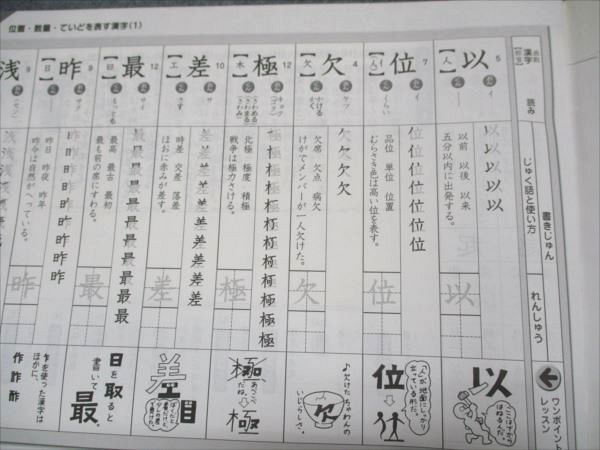 位置・数量・ていどを表す漢字(1)
漢字
画数
部首
読み
書きじゅん
じゅく語と使い方
れんしゅう
ワンポイント
レッスン
以
5
【人】
イ
以前 以後 以来
五分以内に出発する。
以
以
ここはつかず
はねるんだ。
位
7
【イ】
イ
くらい
位位位位位位位
品位 単位 位置
むらさき色は高い位を表す。
位
位
人が地面にしっかり
立っている形だ。
欠
4
【欠】
ケツ
かける
かく
欠欠欠欠
欠席 欠点 病欠
けがでメンバーが一人欠けた。
欠
♪欠けたちゃわんの
いじらしさ。
欠
極
12
【木】
キョク
(ゴク)
きわめる
きわまる
きわみ
北極 極度 積極
戦争は極力さける。
極
極
極
差
10
【工】
サ
さす
時差 交差 落差
ほほに赤みが差す。
差
差
最
12
【日】
サイ
もっとも
最高 最古 最初
最前の席にすわる。
最
日を取ると
書いて
最。
昨
9
【日】
サク
昨日 昨夜 昨年
昨今は自然がへっている。
昨
乍を使った漢字は
ほかに、
作 詐 酢
浅
9